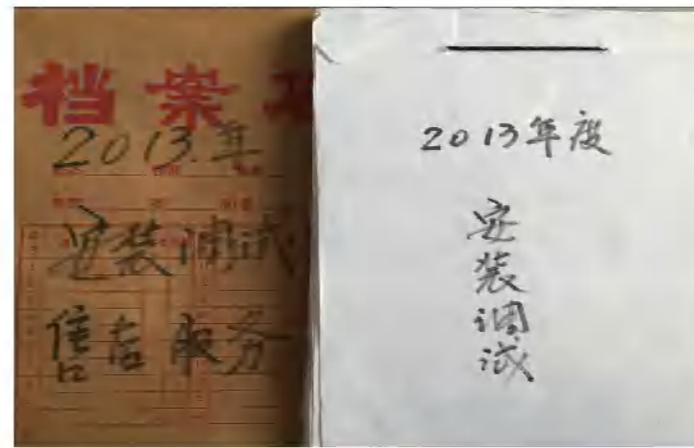 档案
2013.年
安装调试
售后服务
2013年度
安装调试